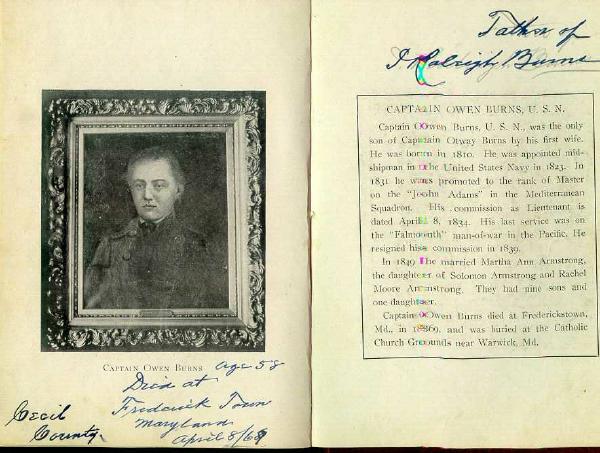 CAPTAIN OWEN BURNS Age 58
Died at
Frederick Town
Maryland
April 8/69
Cecil
County.
Father of
Raleigh Burns
CAPTAIN OWEN BURNS, U. S. N.
Captain Owen Burns, U. S. N., was the only
son of Captain Otway Burns by his first wife.
He was born in 1810. He was appointed mid-
shipman in the United States Navy in 1823. In
1831 he was promoted to the rank of Master
on the "John Adams" in the Mediterranean
Squadron. His commission as Lieutenant is
dated April 8, 1834. His last service was on
the "Falmouth" man-of-war in the Pacific. He
resigned his commission in 1839.
In 1849 he married Martha Ann Armstrong,
the daughter of Solomon Armstrong and Rachel
Moore Armstrong. They had nine sons and
one daughter.
Captain Owen Burns died at Fredericktown,
Md., in 1869, and was buried at the Catholic
Church Grounds near Warwick, Md.